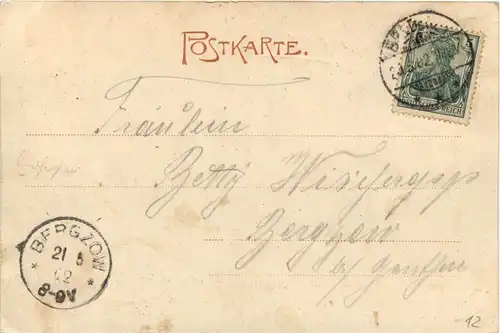 POSTKARTE.
Fräulein
Betty
Bergzow
b/ Genthin
BERGZOW
21 5
02
8-9V
12